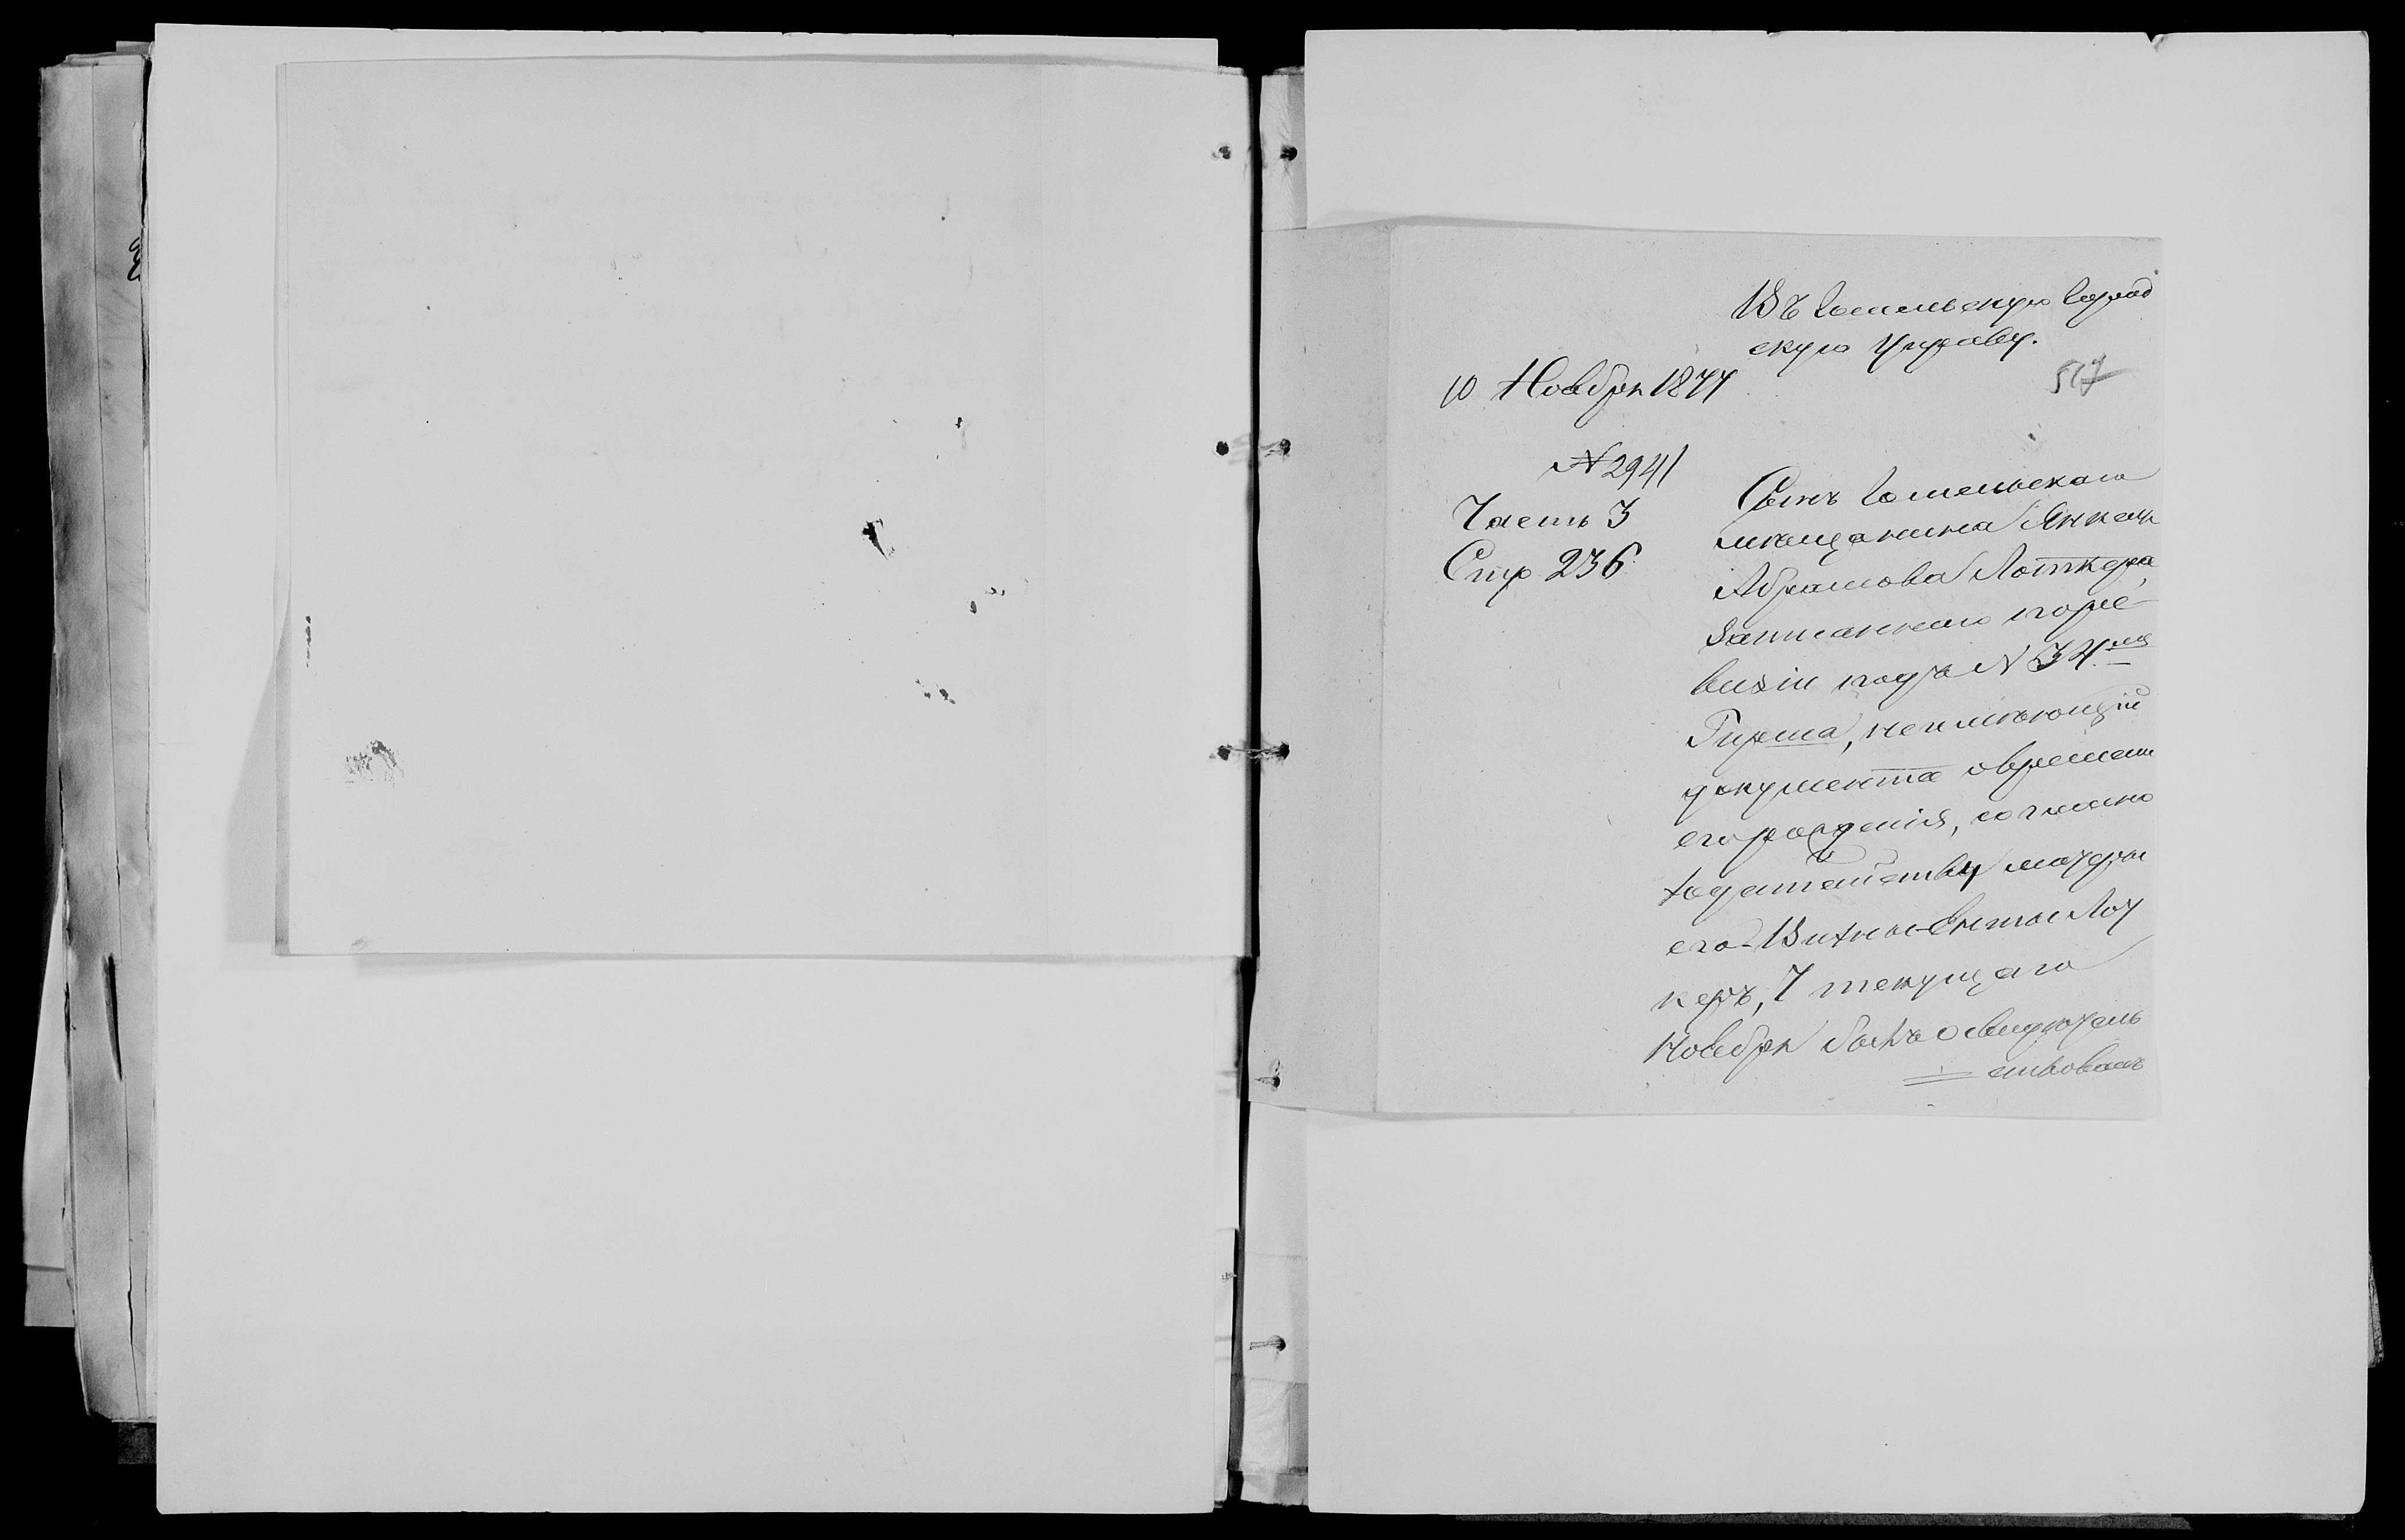 Въ Гомельскую Город
скую Управу.
10 Ноября 1877
517
№ 2941
Часть 3
Стр 236
Сынъ Гомельскаго
мѣщанина Янкеля
Абрамова Лоткера,
записаннаго по ре-
визіи подъ № 34мъ
Гирша, неимѣющій
документа о времени
его рожденія, согласно
ходатайству матери
его Вихны-Энты Лот
керъ, 7 текущаго
Ноября былъ освидѣтель
ствованъ